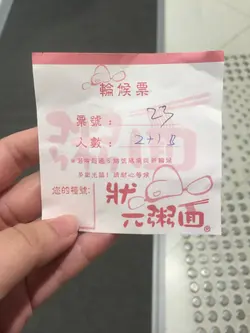 輪候票
票號： 23
人數： 2+1
多謝光臨！請耐心等候
您的檯號：
狀
元粥面®